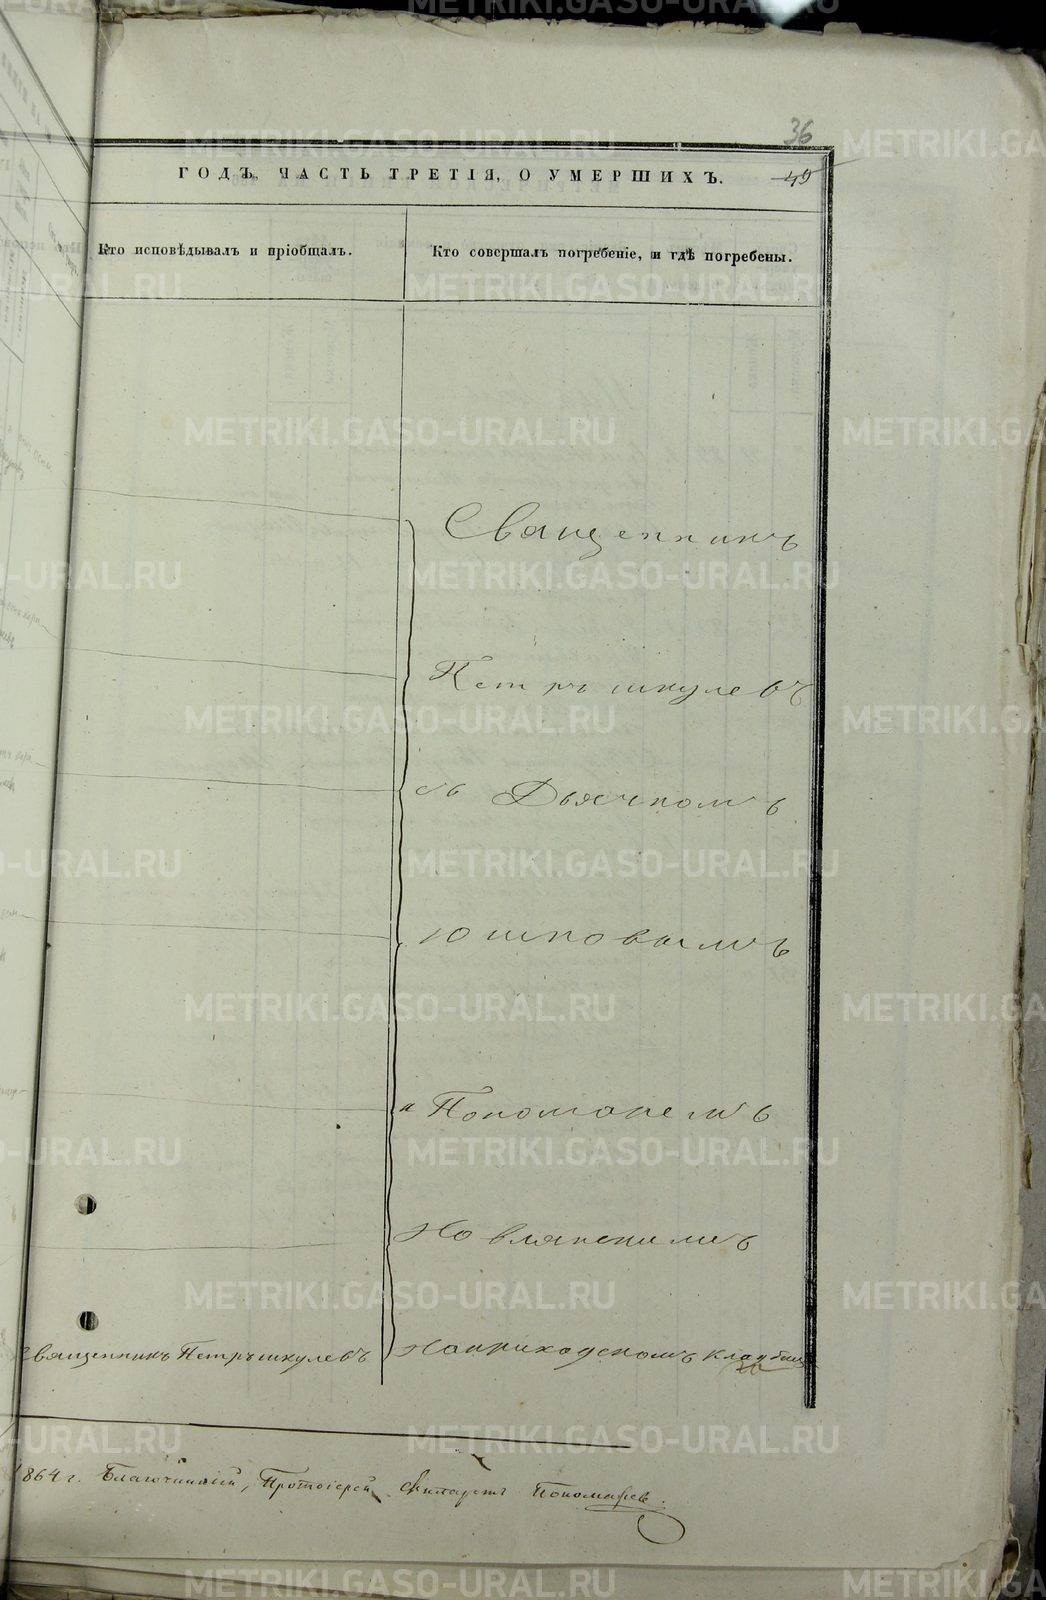 36
ГОДЪ, ЧАСТЬ ТРЕТІЯ, О УМЕРШИХЪ.
45
Кто исповѣдывалъ и пріобщалъ.
Кто совершалъ погребеніе, и гдѣ погребены.
Священникъ
Петръ шкулевъ
съ Дьячкомъ
юшковымъ
и Пономаремъ
Новлянскимъ
Священникъ Петръ шкулевъ
На приходскомъ кладбищѣ
1864 г. Благочинный, Протоіерей Филаретъ Пономаревъ.
METRIKI.GASO-URAL.RU